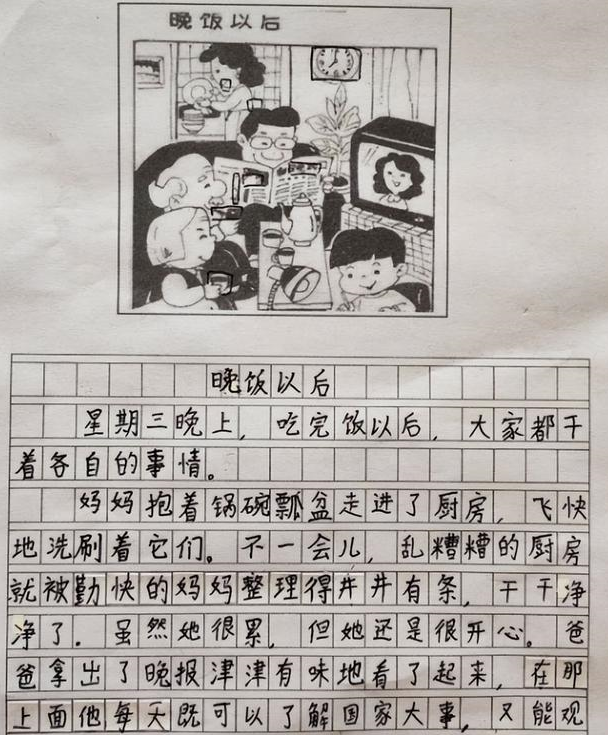 晚饭以后
晚饭以后
星期三晚上，吃完饭以后，大家都干
着各自的事情。
妈妈抱着锅碗瓢盆走进了厨房，飞快
地洗刷着它们。不一会儿，乱糟糟的厨房
就被勤快的妈妈整理得井井有条，干干净
净了。虽然她很累，但她还是很开心。爸
爸拿出了晚报津津有味地看了起来，在那
上面他每天既可以了解国家大事，又能观